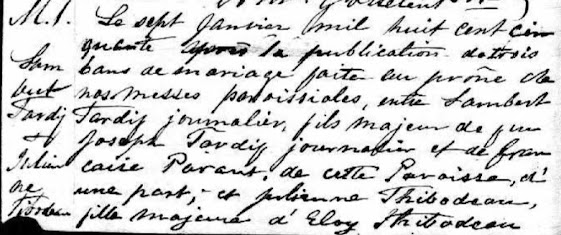 M. 1. Le sept Janvier mil huit cent cin
quante après la publication de trois
Lam bans de mariage faite au prône de
bert nos messes paroissiales, entre Lambert
Tardif Tardif journalier, fils majeur de feu
& Joseph Tardif journalier et de Fran
Julien caise Parant, de cette Paroisse, d'
ne une part; et Julienne Thibodeau,
Tibodeau fille majeure d'Eloy Thibodeau